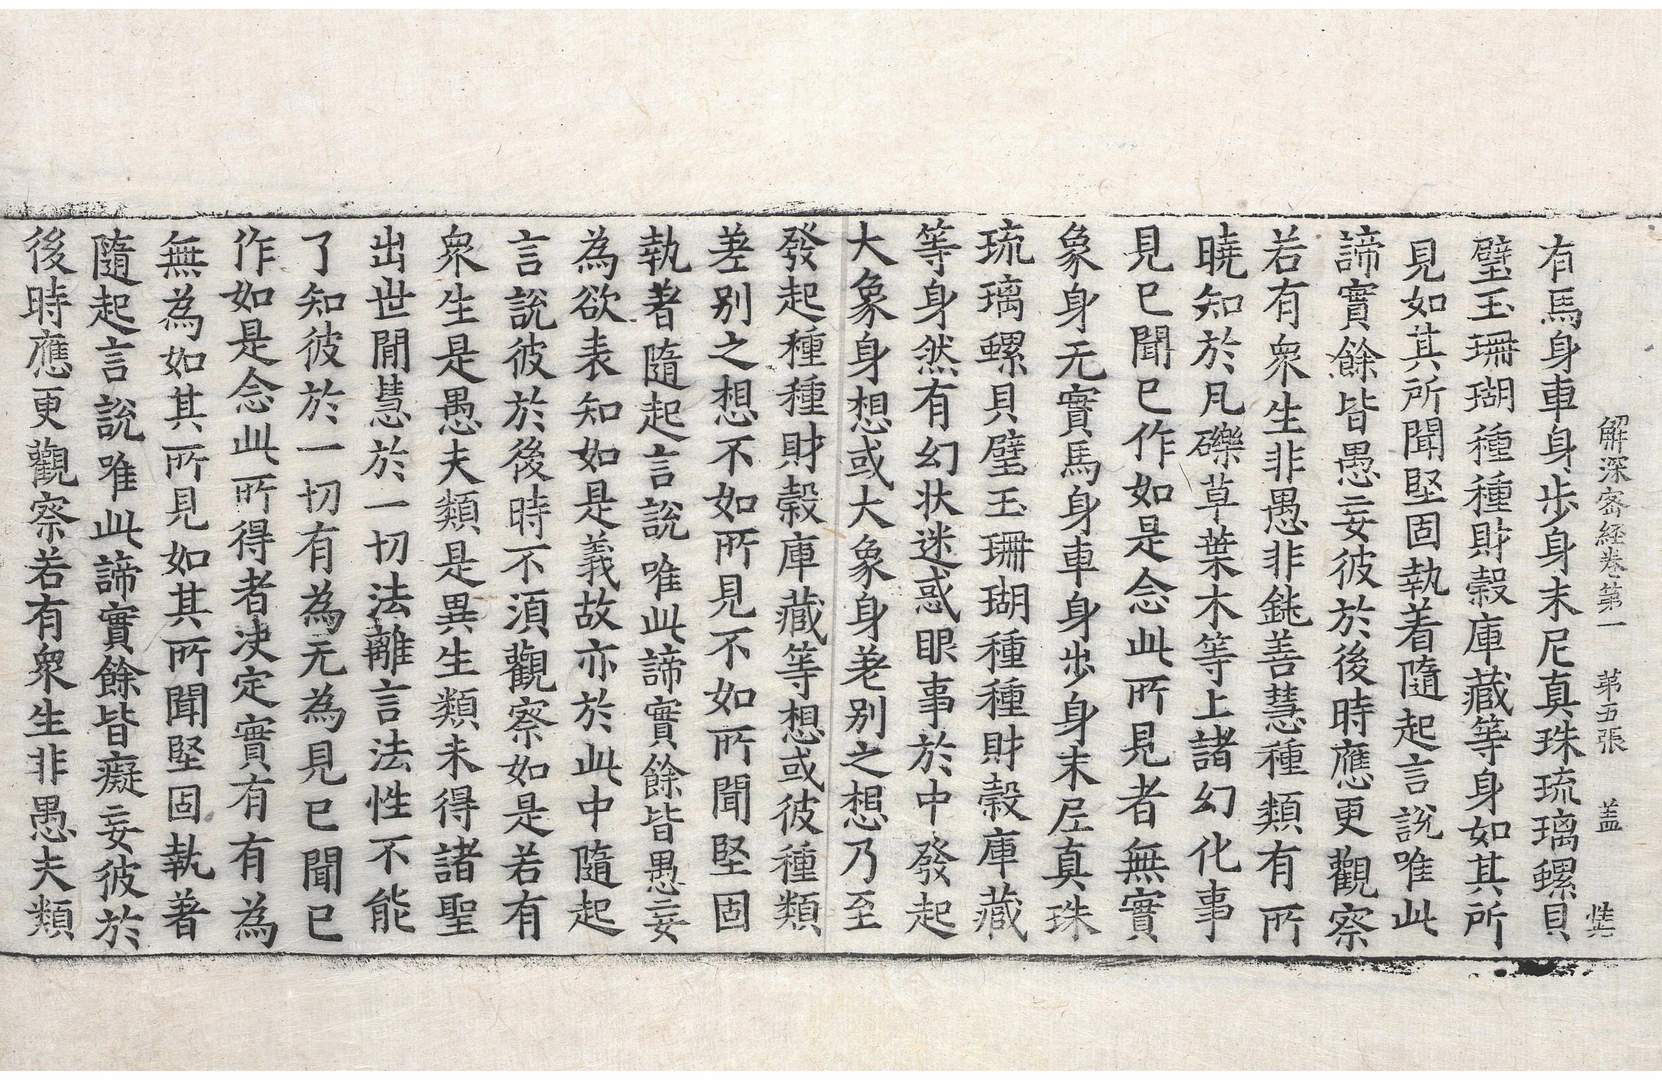 解深密經卷第一 第五張 盖 焋
有馬身車身步身末尼真珠琉璃螺貝
璧玉珊瑚種種財穀庫藏等身如其所
見如其所聞堅固執著隨起言說唯此
諦實餘皆愚妄彼於後時應更觀察
若有衆生非愚非鈍善慧種類有所
曉知於凡礫草葉木等上諸幻化事
見已聞已作如是念此所見者無實
象身无實馬身車身步身末尼真珠
琉璃螺貝璧玉珊瑚種種財穀庫藏
等身然有幻狀迷惑眼事於中發起
大象身想或大象身差別之想乃至
發起種種財穀庫藏等想或彼種類
差別之想不如所見不如所聞堅固
執著隨起言說唯此諦實餘皆愚妄
為欲表知如是義故亦於此中隨起
言說彼於後時不須觀察如是若有
衆生是愚夫類是異生類未得諸聖
出世間慧於一切法離言法性不能
了知彼於一切有為无為見已聞已
作如是念此所得者決定實有有為
無為如其所見如其所聞堅固執著
隨起言說唯此諦實餘皆癡妄彼於
後時應更觀察若有衆生非愚夫類